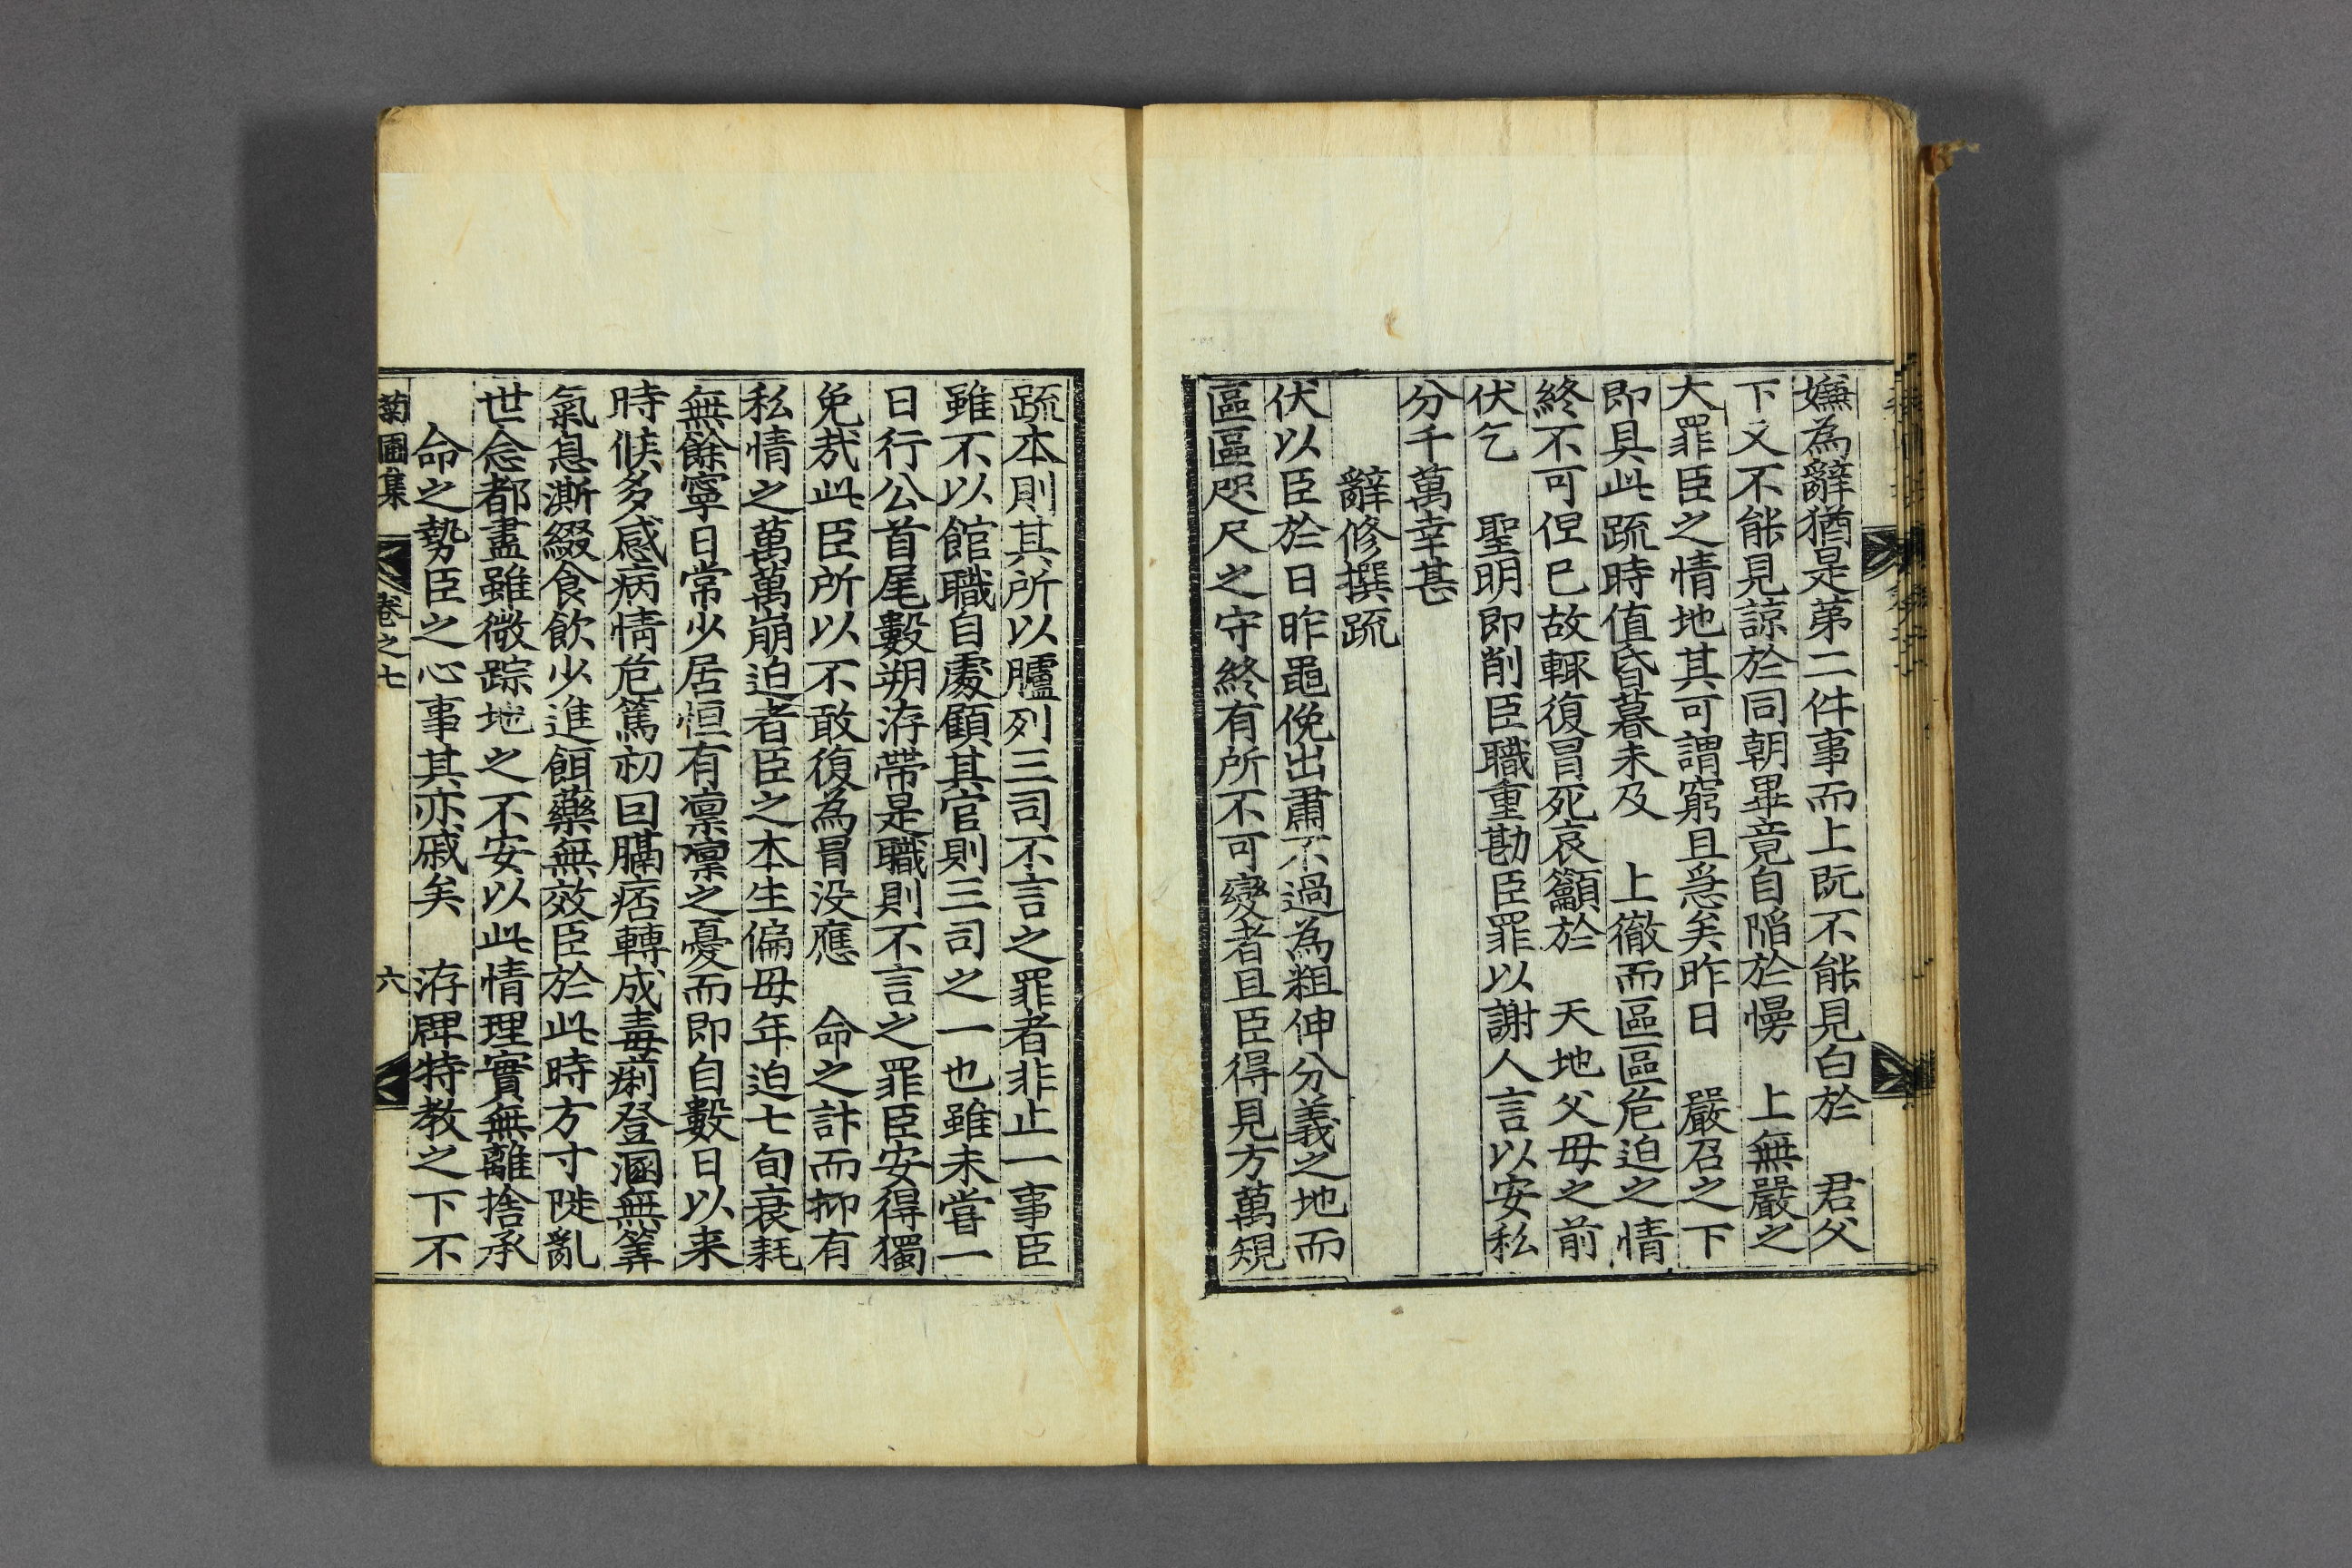 嫌為辭猶是第二件事而上旣不能見白於　君父
下又不能見諒於同朝畢竟自陷於慢　上無嚴之
大罪臣之情地其可謂窮且急矣昨日　嚴召之下
即具此疏時值昏暮未及　上徹而區區危迫之情
終不可但已故輒復冒死哀籲於　天地父母之前
伏乞　聖明即削臣職重勘臣罪以謝人言以安私
分千萬幸甚
辭修撰疏
伏以臣於日昨黽俛出肅不過為粗伸分義之地而
區區咫尺之守終有所不可變者且臣得見方萬䂓
疏本則其所以臚列三司不言之罪者非止一事臣
雖不以館職自處顧其官則三司之一也雖未嘗一
日行公首尾數朔洊帶是職則不言之罪臣安得獨
免㢤此臣所以不敢復為冒没應　命之計而抑有
私情之萬萬崩迫者臣之本生偏母年迫七旬衰耗
無餘寧日常少居恒有凛凛之憂而即自數日以来
時候多感病情危篤初曰膈痞轉成毒痢登溷無筭
氣息澌綴食飲少進餌藥無效臣於此時方寸陡亂
世念都盡雖微踪地之不安以此情理實無離捨承
命之勢臣之心事其亦戚矣　洊牌特教之下不
菊圃集　卷之七　六